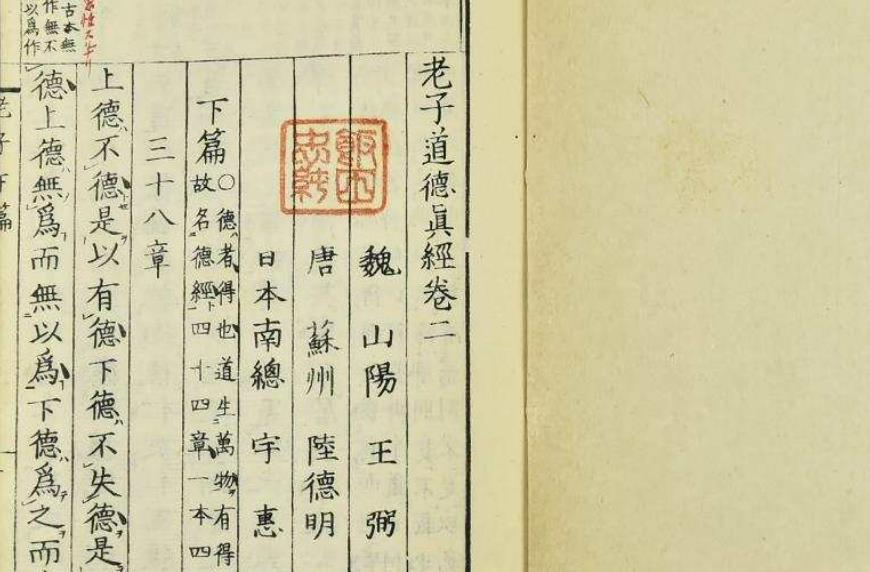 老子道德眞經卷二
魏 山陽 王 弼
唐 蘇州 陸德明
日本南總 宇 惠
下篇○
德者得也道生萬物有得
故名德經四十四章一本四
三十八章
上德不德是以有德下德不失德是
古本無
作無不
以爲作
德上德無爲而無以爲下德爲之而
老子下篇